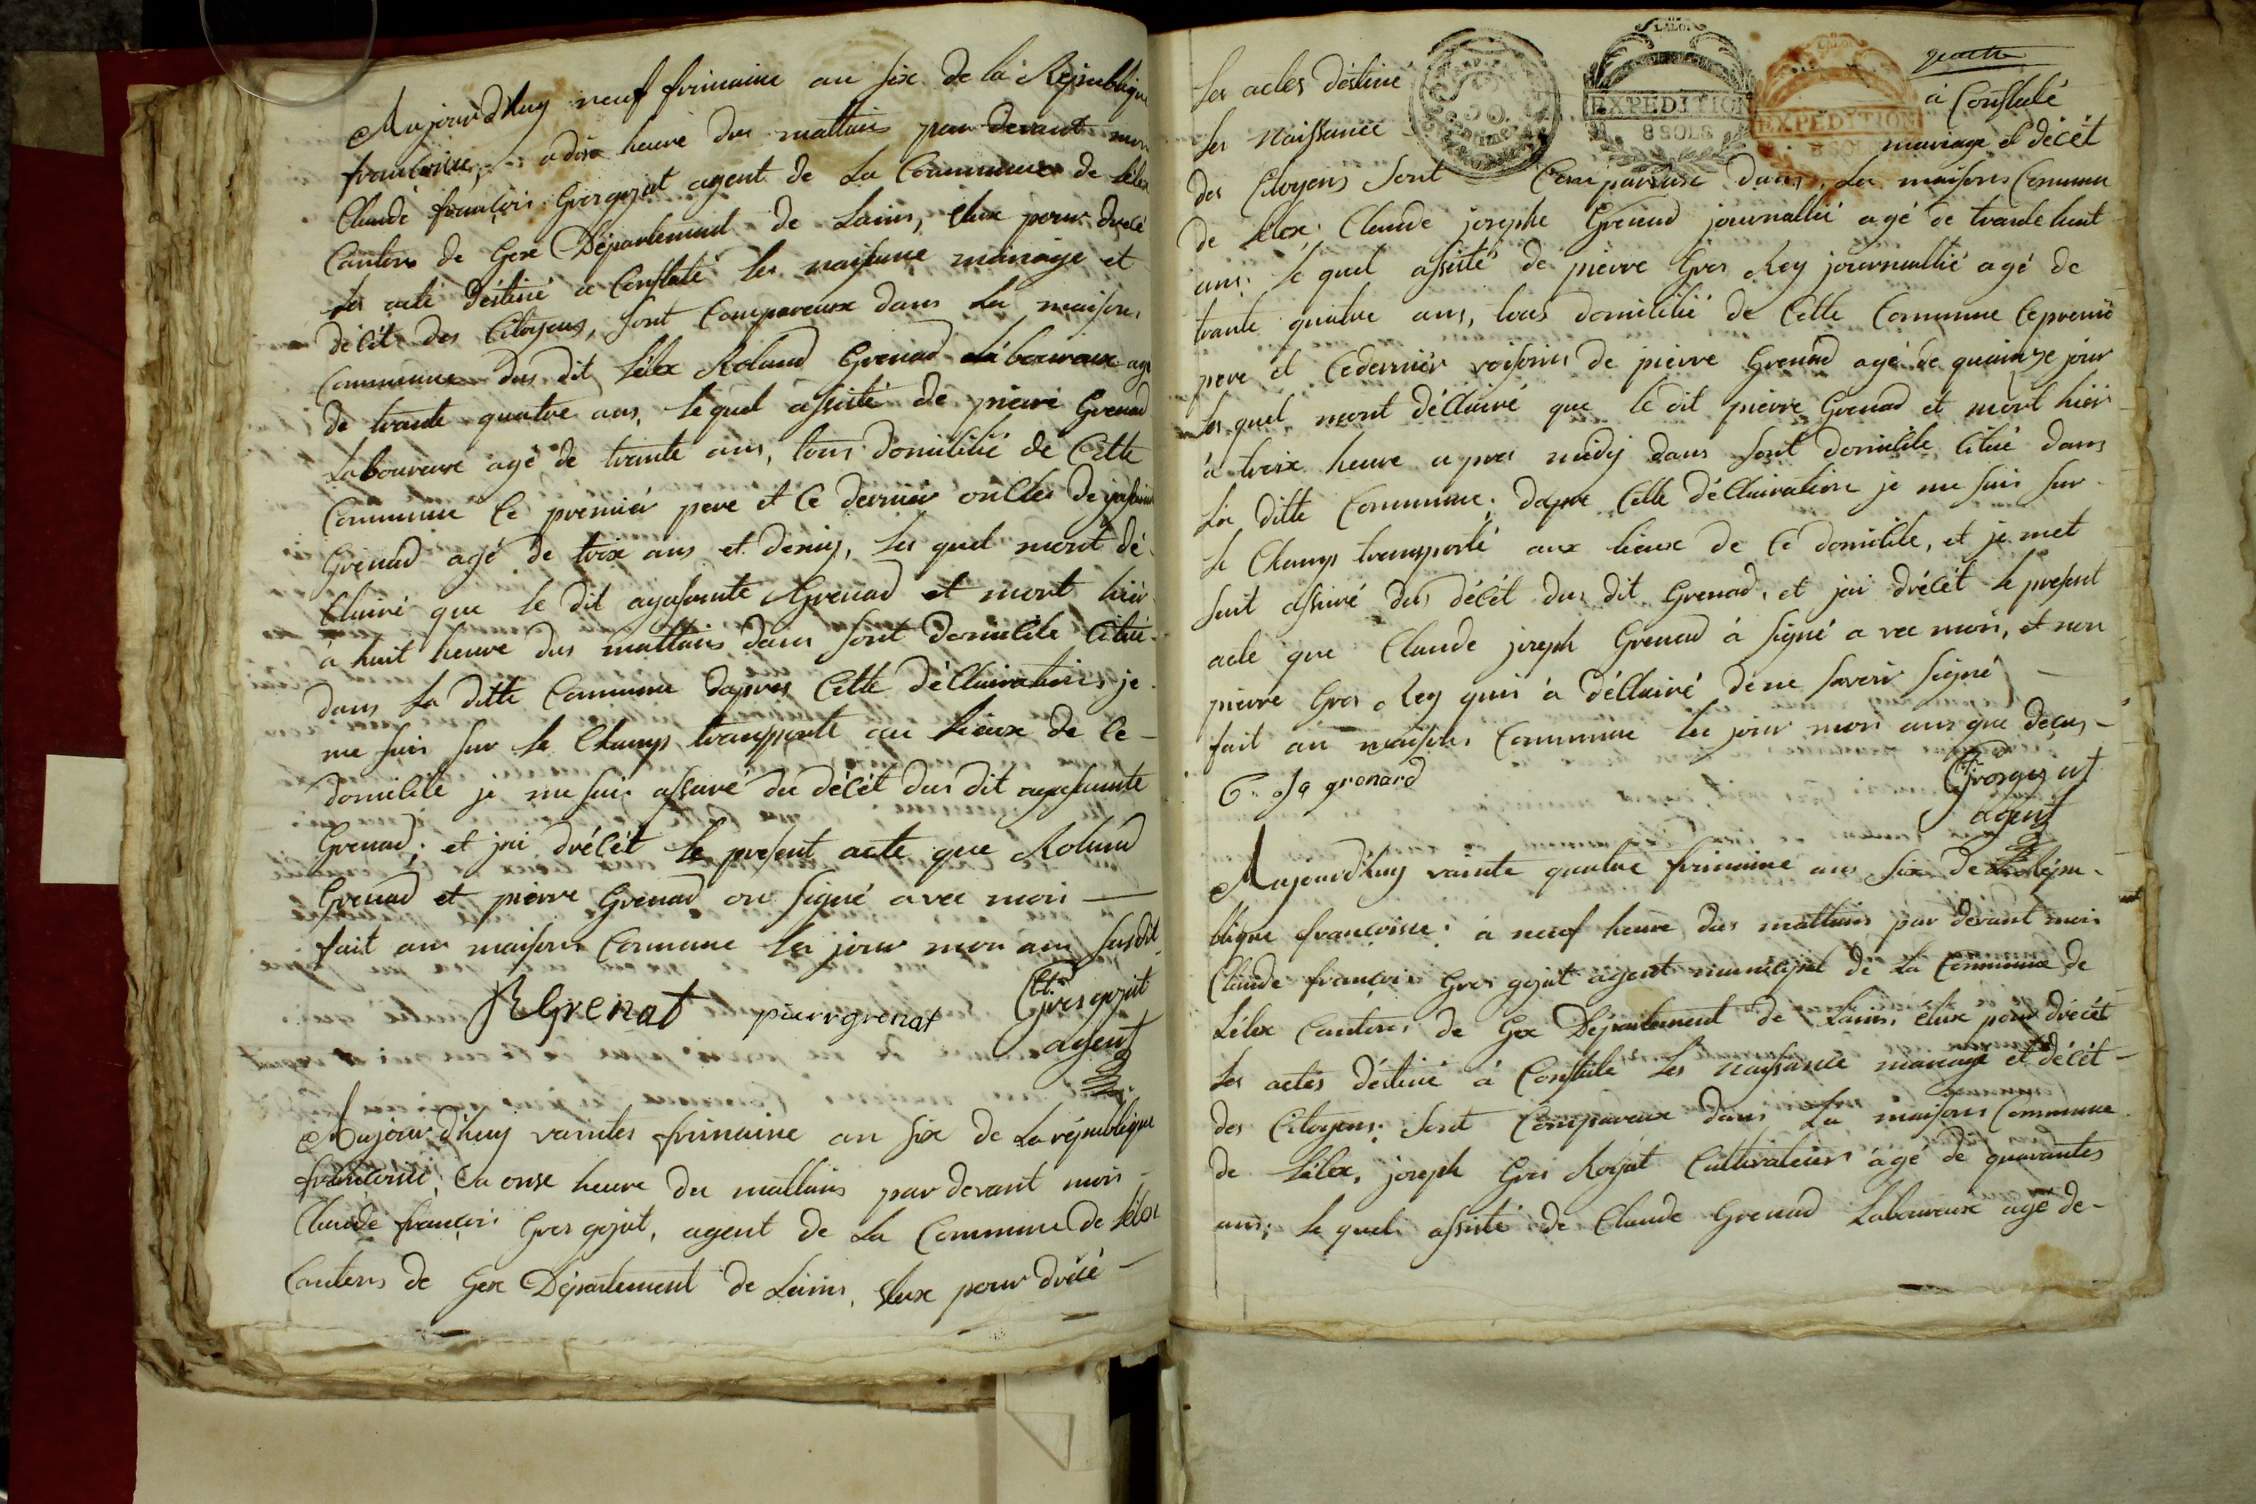 Aujourd'huy neuf frimaire an six de la République
francoise, a dix heure dus mattains par devant moi
Claude françois Grosgojat agent de La Commune de Lélex
Cantons de Gex Département de Lains, élux pour drecé
les acté déstiné a Constaté les naissance mariage et
décét des Citoyens, sont Comparreux dans La maisons
Commune dus dit Lélex Roland Grenad Laboureux agé
de trante quatre ans, lequel assisté de pieire Grenad
Laboureure agé de trante ans, tous domicilié de Cette
Commune Ce premiér pere et Ce derniér oncles de
Grenad agé de troix ans et demis, les quel mont dé-
Clairé que le dit ayasainte Grenad et mort hiér
à huit heure dus mattains dans sont domicile Citué
dans La ditte Commune dapres Cette déClairations je
me suis sur le Champs transporté au Lieux de Ce -
domicile je me suis assuré du décét dus dit ayasainte
Grenad, et jai drécét le present acte que Roland
Grenad et pieire Grenad on signé avec mois —
fait aux maisons Commune les jour mois ans susdit
RGrenat pierrgrenat Grosgojat
agent
Aujourd'huy vaintes frimaire an six de La république
francoise, a onse heure du mattains par devant mois -
Claude françois Gros gojat, agent de La Commune de Lélex
Cantons de Gex Département de Lains, élux pour drécé -
quattre
Les actes déstiné à Constaté
Les Naissance mariage et décét
des Citoyens sont Comparreux dans La maisons Commune
de Lélex Claude josephe Grenad journallié agé de trante huit
ans. le quel assisté de pieirre Gros Rey journallié agé de
trante quatre ans, tous domicilié de Cette Commune Ce premié
pere et Cederniér voisoins de pieirre Grenad agé de quainze jour
les quel mont déCllairé que le dit pieirre Grenad et mort hiér
à troix heure apres midy dans sont domicile Citué dans
La ditte Commune, dapre Cette déClairations je me suis sur
le Champs transporté aux Lieux de Ce domicile, et je met
suit assuré dus décét dus dit Grenad, et jai drécét le present
acte que Claude joseph Grenad à signé avec mois, et non
pieirre Gros Rey quis à déCllairé dene savoir signé —
fait au maisons Commune les jour mois ans que deçus -
C. Jo grenard Grosgojat
agent
Aujourd'huy vainte quatre frimaire ans six de La Répu-
blique françoisse à neuf heure dus mattains par dévant mois
Claude françois Gros gojat agent municipal de La Commune de
Lélex Cantons de Gex Département de Lains, élux pour drécét
Les actes déstiné à Constaté les naissance mariage et décét -
des Citoyens; sont Comparreux dans La maisons Commune
de Lélex, joseph Gros Rojat Cultivateur agé de quarantes
ans; le quel assisté de Claude Grenad Laboureux agé de -
EXPEDITION
8 SOLS
EXPEDITION
8 SOLS